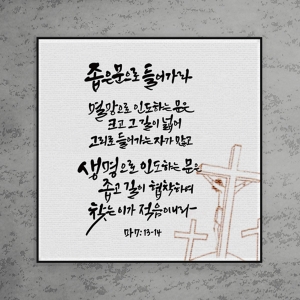 좁은문으로 들어가라
멸망으로 인도하는 문은
크고 그 길이 넓어
그리로 들어가는 자가 많고
생명으로 인도하는 문은
좁고 길이 협착하여
찾는 이가 적음이니라
마 7:13-14